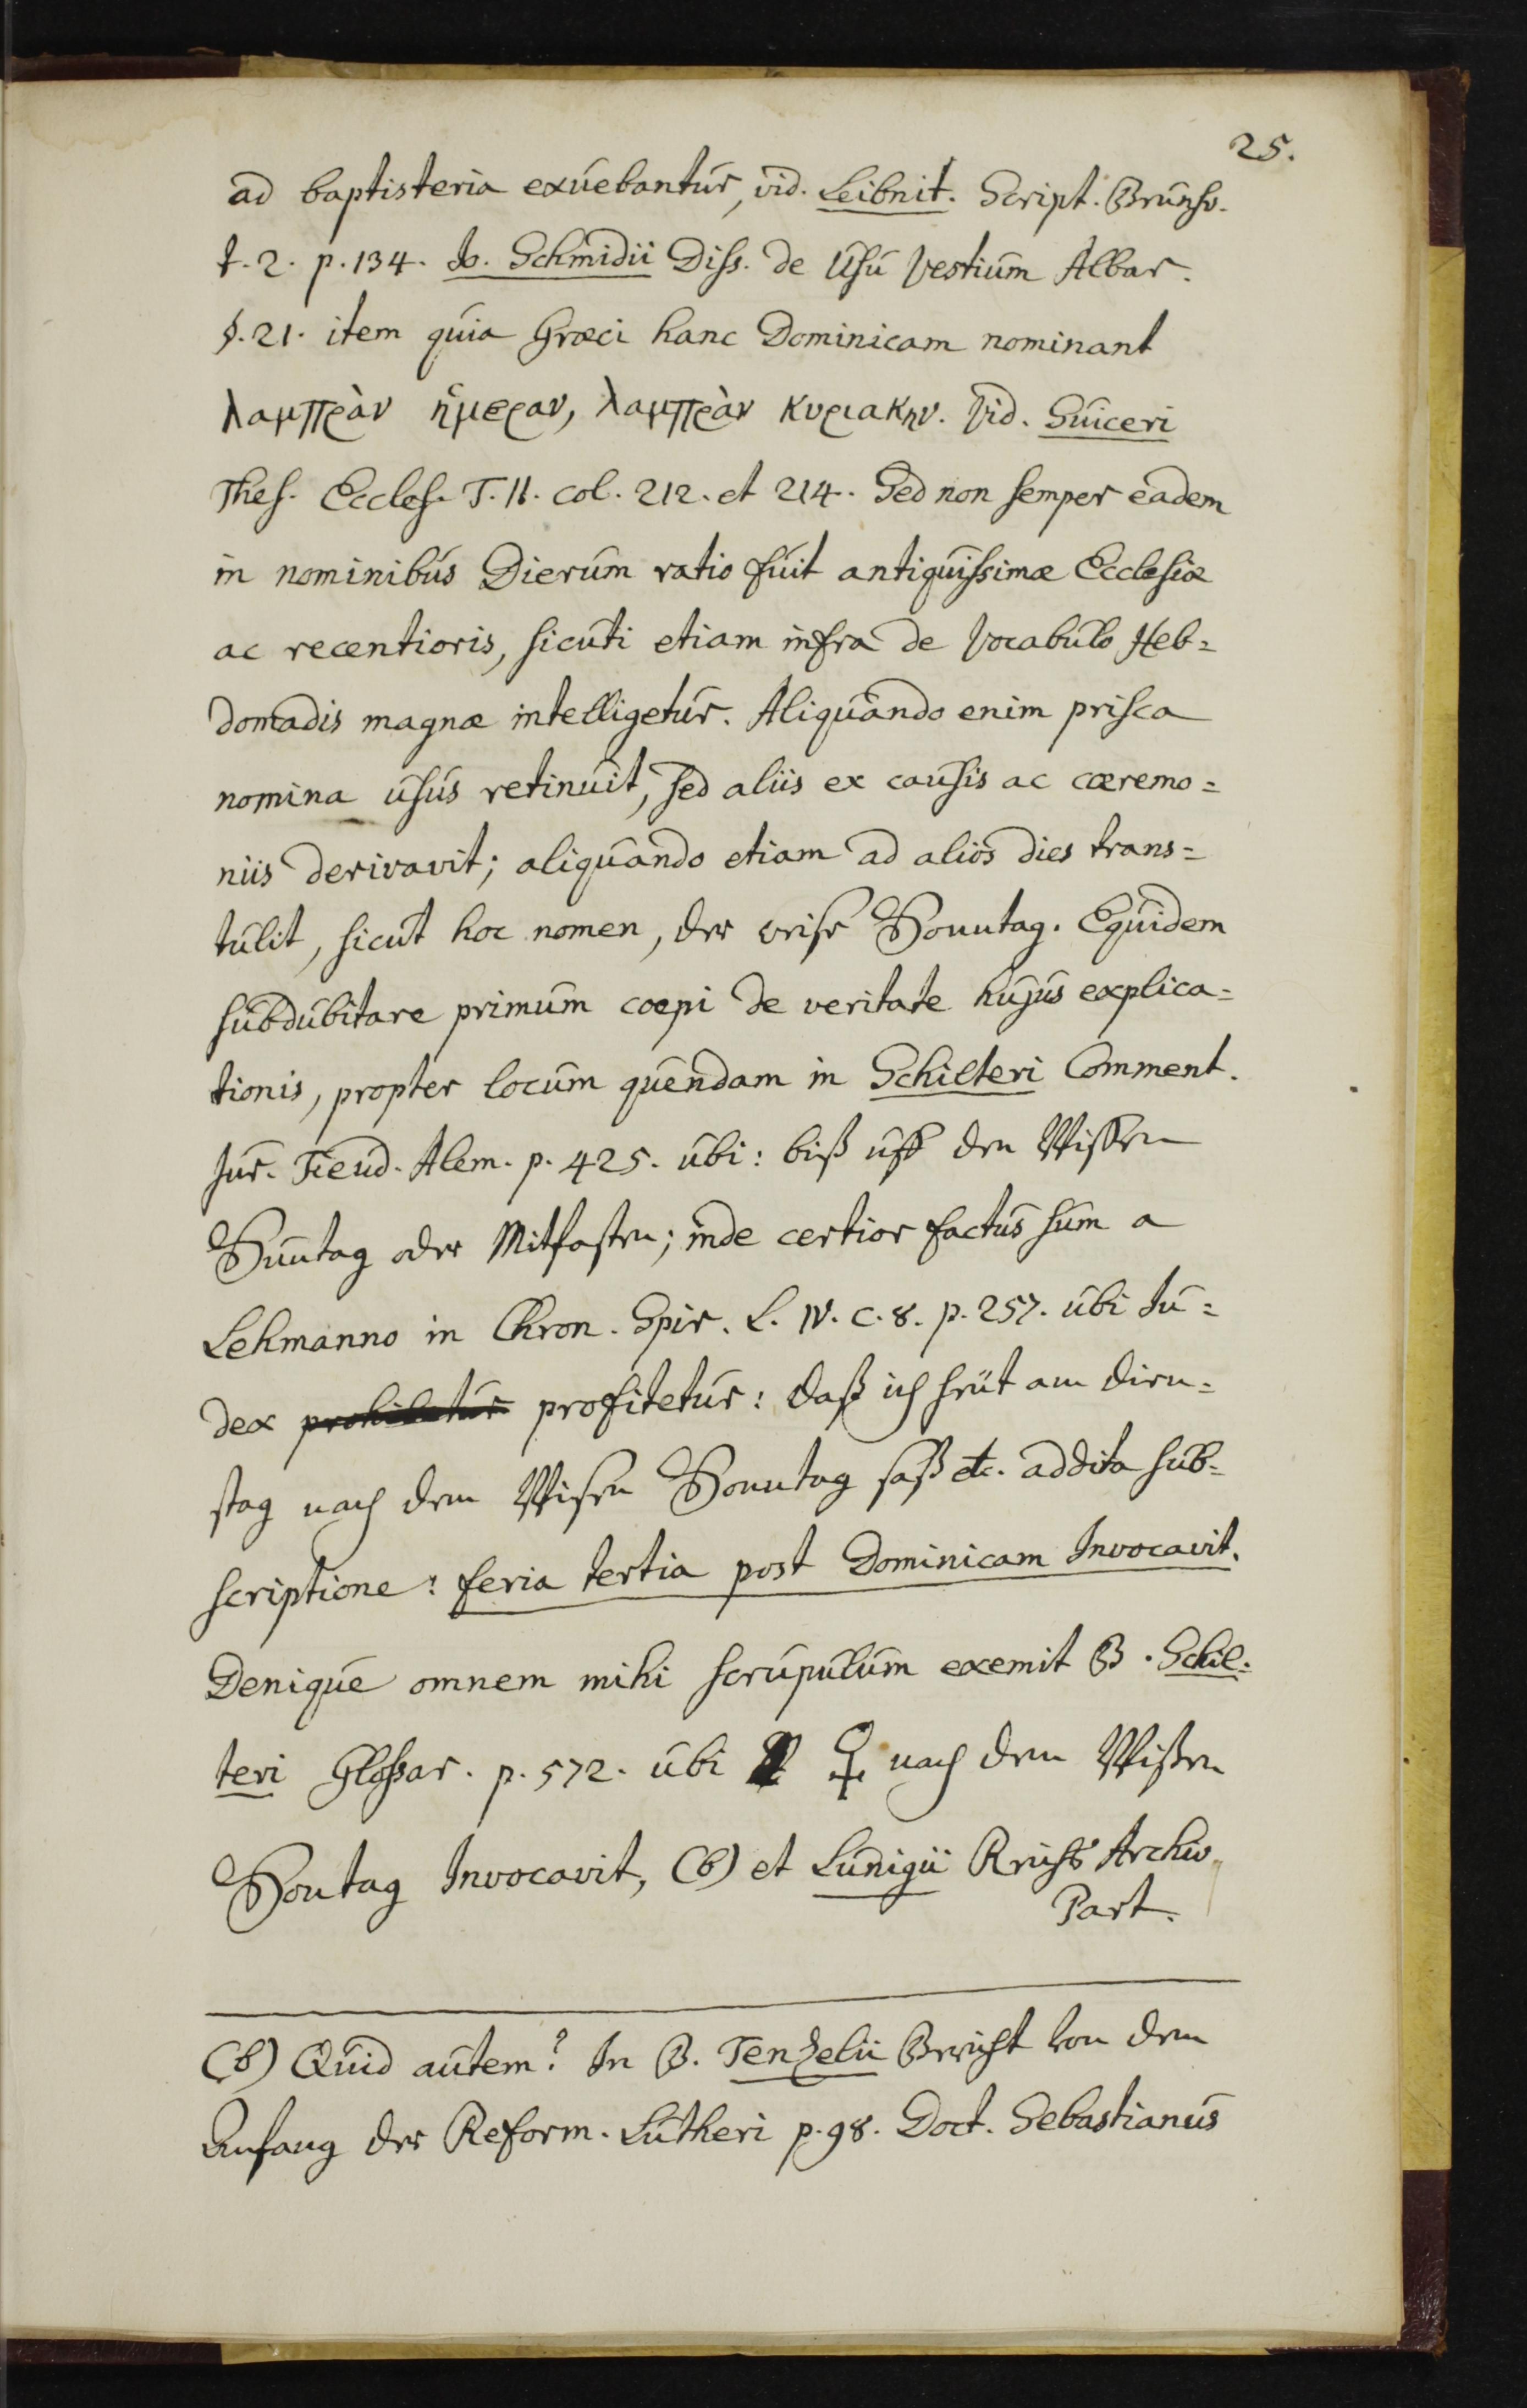 25.
ad baptisteria exuebantur, vid. Leibnit. Script. Brunsv.
t. 2. p. 134. Jo. Schmidii Diss. de Usu Vestium Albar.
§. 21. item quia Græci hanc Dominicam nominant
λαμπρὰν ἥμεραν, λαμπρὰν κυριακην. Vid. Suiceri
Thes. Eccles. T. II. col. 212. et 214. Sed non semper eadem
in nominibus Dierum ratio fuit antiquissimæ Ecclesiæ
ac recentioris, sicuti etiam infra de Vocabulo Heb=
domadis magnæ intelligetur. Aliquando enim prisca
nomina usus retinuit, sed aliis ex causis ac cæremo=
niis derivavit; aliquando etiam ad alios dies trans=
tulit, sicut hoc nomen, der weise Sonntag. Equidem
subdubitare primum coepi de veritate hujus explica=
tionis, propter locum quendam in Schilteri Comment.
Jur. Feud. Alem. p. 425. ubi: biß uff den Wissen
Sunntag oder Mitfasten; inde certior factus sum a
Lehmanno in Chron. Spir. L. IV. c. 8. p. 257. ubi Ju=
dex prohibetur profitetur: daß ich heüt am dien=
stag nach dem Wisen Sonntag saß etc. addita sub=
scriptione: feria tertia post Dominicam Invocavit.
Denique omnem mihi scrupulum exemit B. Schil=
teri Glossar. p. 572. ubi ♀ nach dem Wißen
Sontag Invocavit, (b) et Lunigii Reichs Archiv
Part.
(b) Quid autem? In B. Tenzelii Bericht von dem
Anfang der Reform. Lutheri p. 98. Doct. Sebastianus